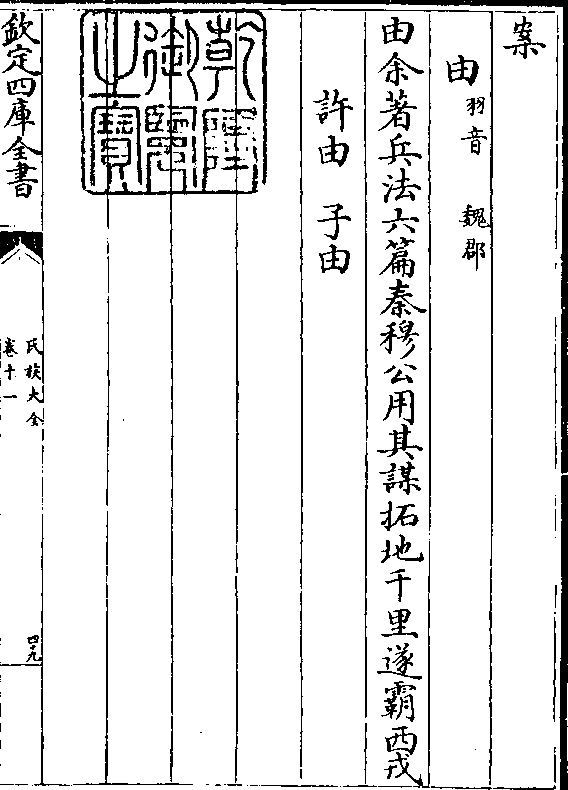 案
由 羽音 魏郡
由余著兵法六篇秦穆公用其謀拓地千里遂霸西戎
許由 子由
乾隆御覽之寶
欽定四庫全書
氏族大全
卷十一
四十九